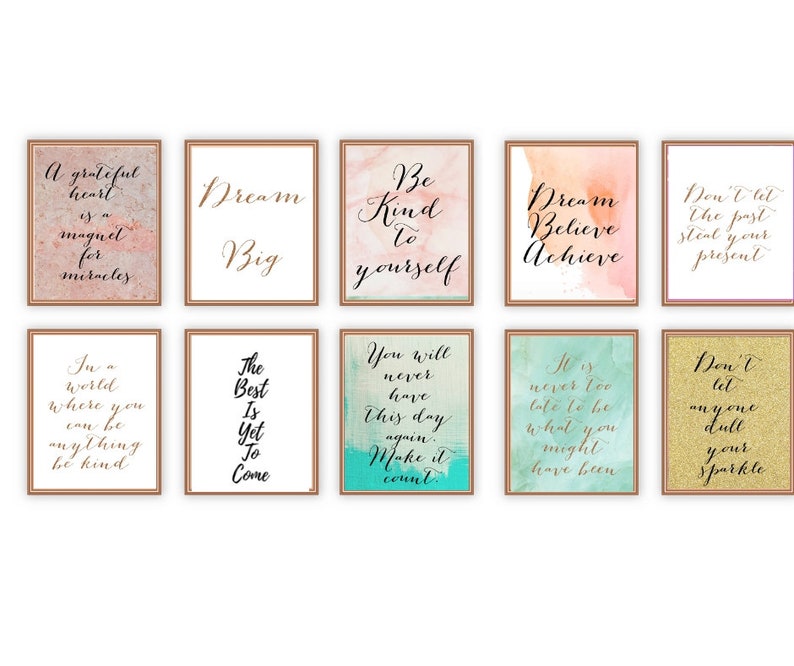 A grateful
heart
is a
magnet
for
miracles
Dream
Big
Be
Kind
to
yourself
Dream
Believe
Achieve
Don't let
the past
steal your
present
In a
world
where you
can be
anything
be kind
The
Best
Is
Yet
To
Come
You will
never
have
this day
again.
Make it
count.
It is
never too
late to be
what you
might
have been
Don't
let
anyone
dull
your
sparkle